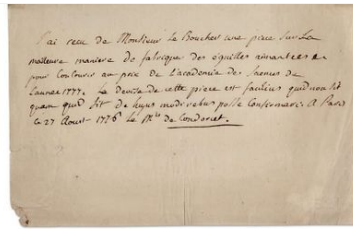 J'ai recu de Monsieur Le Boucher une piece sur la
meilleure maniere de fabrique des éguilles aimantées
pour Concourir au prix de L'academie des Siences de
L'année 1777. La devise de cette piece est facilius quid non sit
quam quid sit de hujus modi rebus posse Confirmare. A Paris
le 27 Aoust 1776 Le Mis de Condorcet.